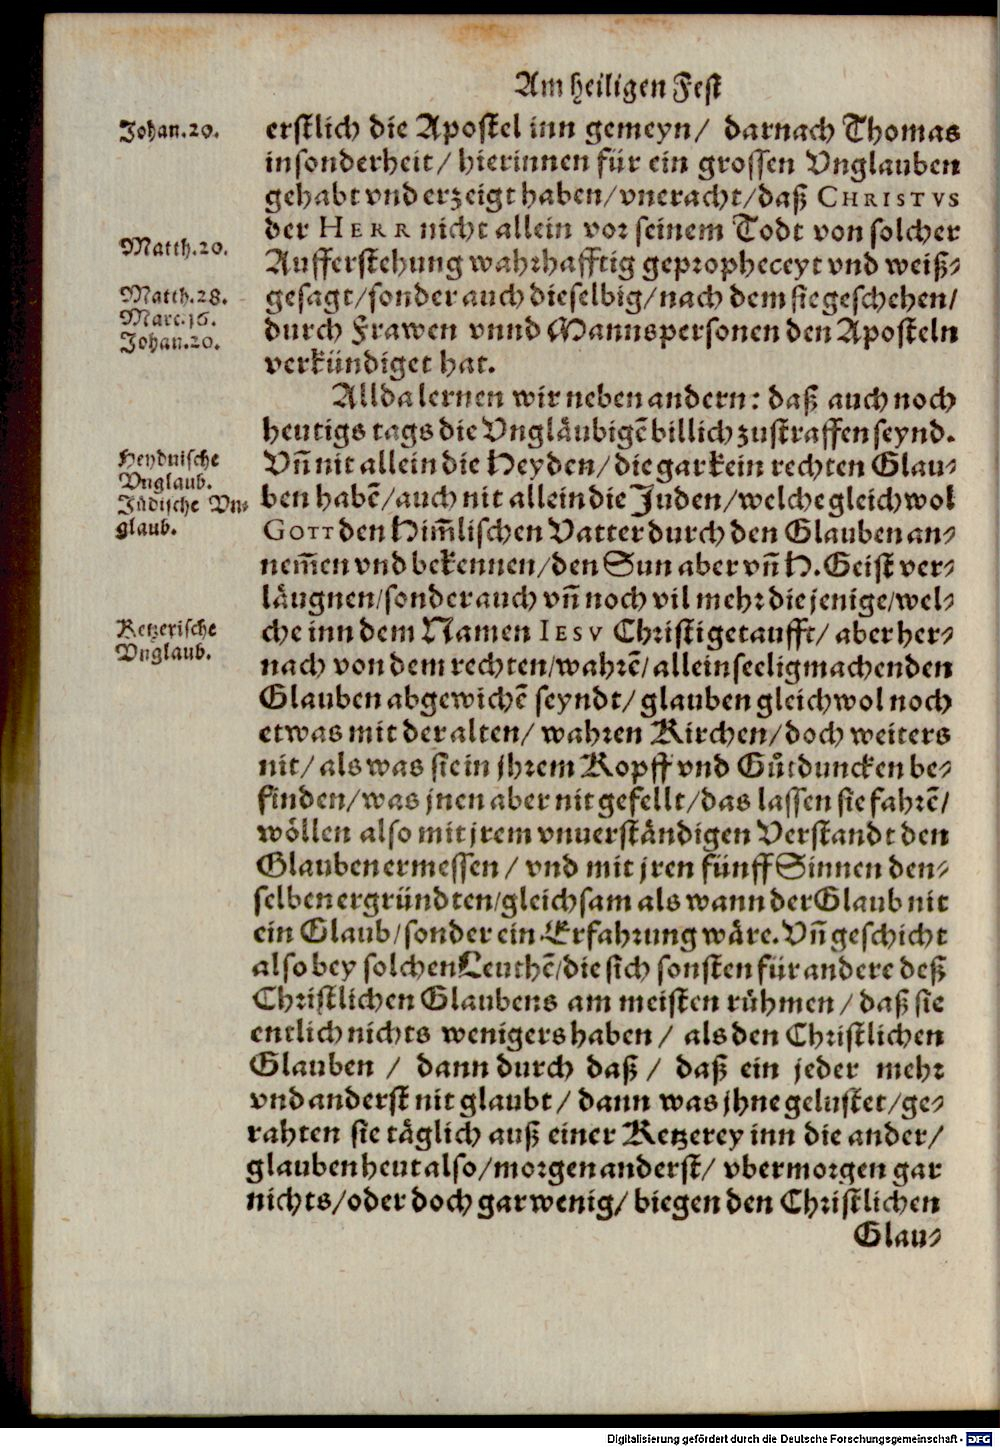 Am heiligen Fest
Johan.20.
erstlich die Apostel inn gemeyn/ darnach Thomas
insonderheit/ hierinnen für ein grossen Vnglauben
gehabt vnd erzeigt haben/ vneracht/ daß CHRISTVS
der HERR nicht allein vor seinem Todt von solcher
Matth.20.
Aufferstehung wahrhafftig gepropheceyt vnd weiß-
Matth.28.
Marc.16.
Johan.20.
gesagt/ sonder auch dieselbig/ nach dem sie geschehen/
durch Frawen vnnd Mannspersonen den Aposteln
verkündiget hat.
Allda lernen wir neben andern: daß auch noch
heutigs tags die Vngläubigē billich zustraffen seynd.
Heydnische
Vnglaub.
Jüdische Vn-
glaub.
Vñ nit allein die Heyden/ die gar kein rechten Glau-
ben habē/ auch nit allein die Juden/ welche gleichwol
GOTT den Him̃lischen Vatter durch den Glauben an-
nem̃en vnd bekennen/ den Sun aber vñ H. Geist ver-
läugnen/ sonder auch vñ noch vil mehr die jenige/ wel-
Ketzerische
Vnglaub.
che inn dem Namen IESV Christi getaufft/ aber her-
nach von dem rechten/ wahrē/ alleinseeligmachenden
Glauben abgewichē seyndt/ glauben gleichwol noch
etwas mit der alten/ wahren Kirchen/ doch weiters
nit/ als was sie in jhrem Kopff vnd Gůtduncken be-
finden/ was jnen aber nit gefellt/ das lassen sie fahrē/
wöllen also mit jrem vnuerständigen Verstandt den
Glauben ermessen/ vnd mit jren fünff Sinnen den-
selben ergründten/ gleichsam als wann der Glaub nit
ein Glaub/ sonder ein Erfahrung wäre. Vñ geschicht
also bey solchen Leuthē/ die sich sonsten für andere deß
Christlichen Glaubens am meisten rühmen/ daß sie
entlich nichts wenigers haben/ als den Christlichen
Glauben/ dann durch daß/ daß ein jeder mehr
vnd anderst nit glaubt/ dann was jhne gelustet/ ge-
rahten sie täglich auß einer Ketzerey inn die ander/
glauben heut also/ morgen anderst/ vbermorgen gar
nichts/ oder doch gar wenig/ biegen den Christlichen
Glau-
Digitalisierung gefördert durch die Deutsche Forschungsgemeinschaft - DFG